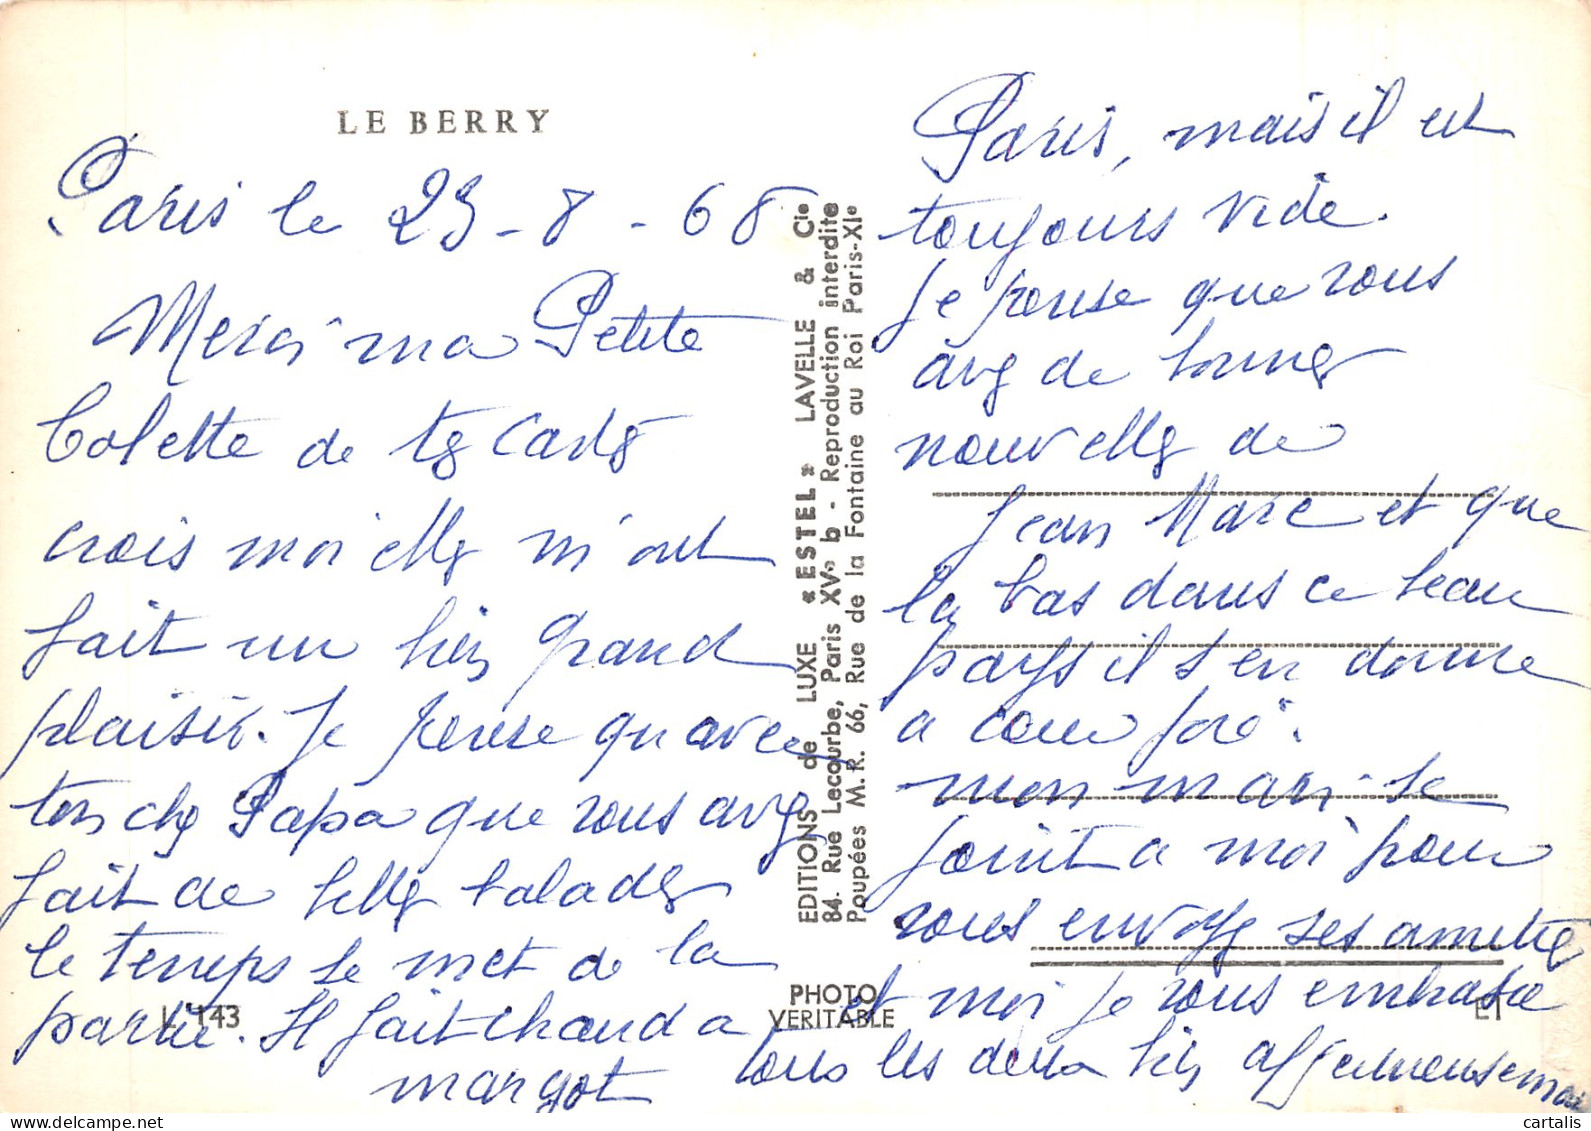 LE BERRY
Paris le 23-8-68
Merci ma Petite
Colette de tes Cartes
crois moi elles m'ont
fait un très grand
plaisir. Je pense qu'avec
ton cher Papa que vous avez
fait de belles balades
le temps se met de la
partie. Il fait chaud a
Paris, mais il est
toujours vide.
Je pense que vous
avez de bonnes
nouvelles de
Jean Marc et que
la bas dans ce beau
pays il s'en donne
a cœur joie.
mon mari se
joint a moi pour
vous envoyer ses amitiés
et moi je vous embrasse
tous les deux très affectueusement
margot
EDITIONS de LUXE «ESTEL» LAVELLE & Cie
84. Rue Lecourbe, Paris XVe b - Reproduction interdite
Poupées M.R. 66, Rue de la Fontaine au Roi Paris-XIe
PHOTO
VERITABLE
L 143
cartalis